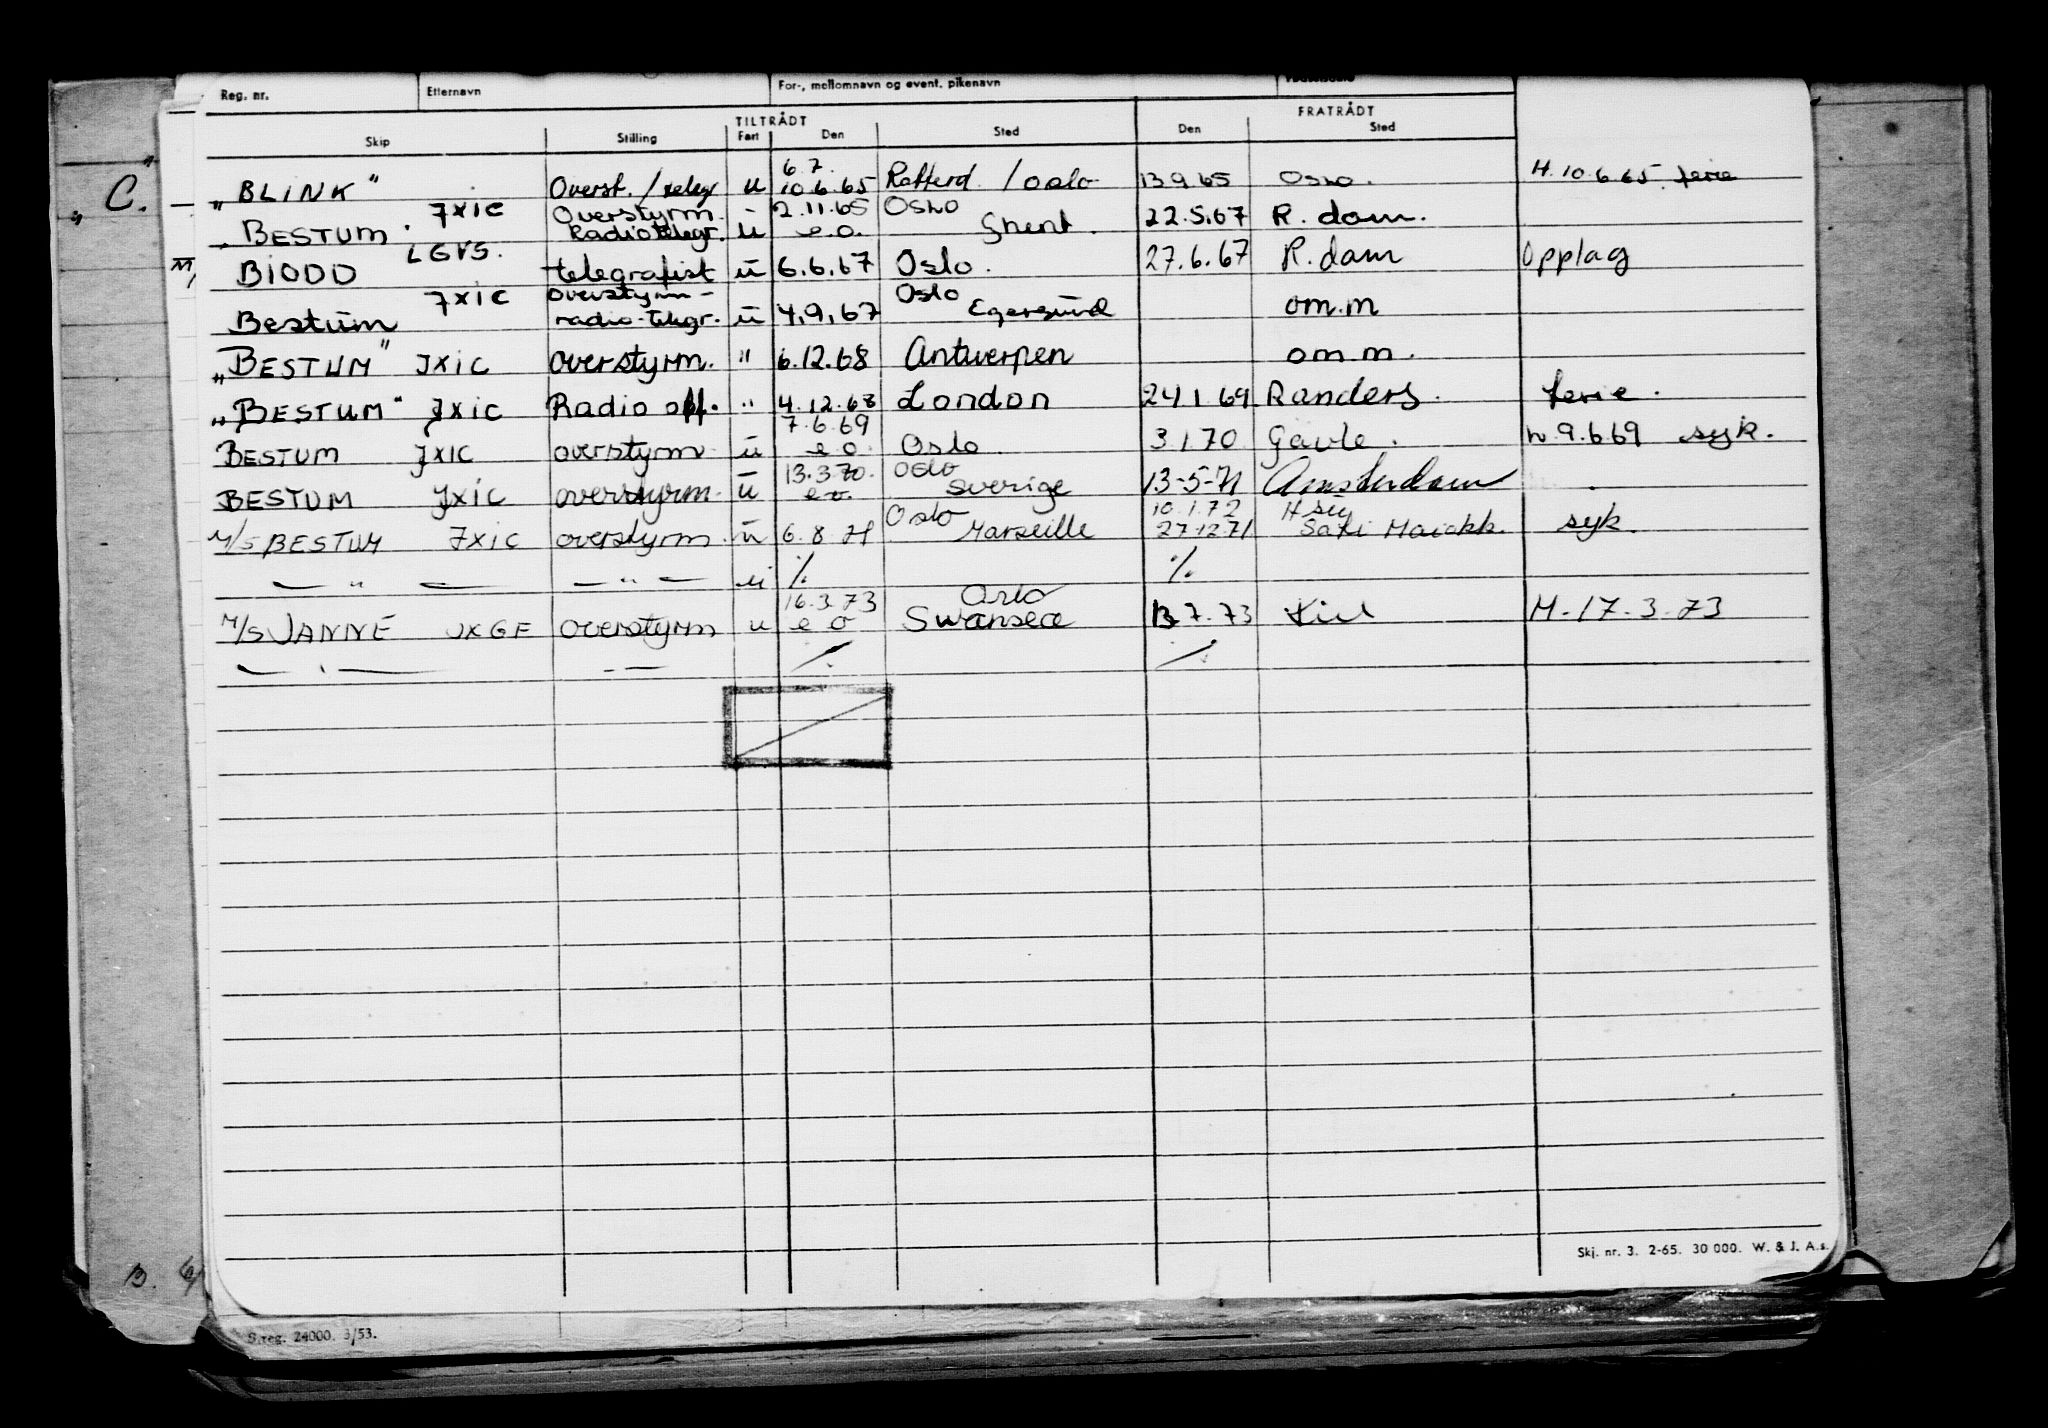 Reg. nr. Etternavn For-, mellomnavn og event. pikenavn
TILTRÅDT FRATRÅDT
Skip Stilling Fart Den Sted Den Sted
6.7.
„BLINK" Overst./telegr u 10.6.65 / Oslo 13.9.65 Oslo. H. 10.6.65. ferie
JXIC Overstyrm. 2.11.65 Oslo
BESTUM Radiotelegr. u e.o. Ghent. 22.5.67 R. dam.
BIODD LGVS. telegrafist u 6.6.67 Oslo. 27.6.67 R.dam Opplag
JXIC overstyrm- Oslo
Bestum radio-telegr. u 4.9.67 Egersund om.m
„BESTUM" JXIC overstyrm. " 6.12.68 Antwerpen om m.
„BESTUM" JXIC Radio off. " 4.12.68 London 24.1.69 Randers. ferie.
7.6.69
BESTUM JXIC overstyrm. u e o Oslo 3.1.70 Gävle. h. 9.6.69 syk.
13.3.70. Oslo
BESTUM JXIC overstyrm. u e o. Sverige 13-5-71 Amsterdam
Oslo 10.1.72
M/S BESTUM JXIC overstyrm. u 6.8.71 Marseille 27.12.71 syk.
— " — — " — u % %
16.3.73 Oslo
M/S JANNE JXGF overstyrm u e o Swansea 13.7.73 Kiel H-17.3.73
„ C. "
B.
Skj. nr. 3. 2-65. 30 000. W. & J. A.s.
S.reg. 24000. 3/53.